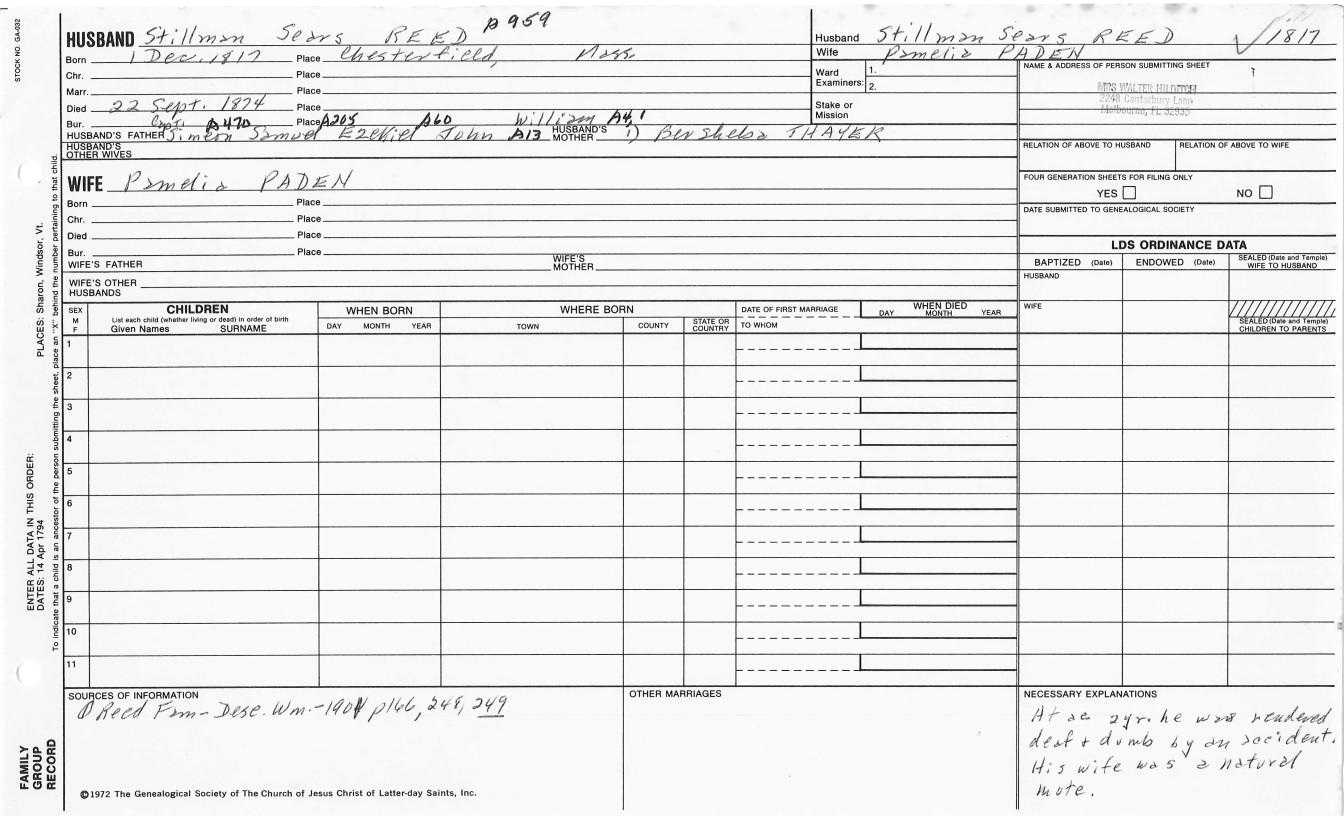 STOCK NO. GA-032
HUSBAND Stillman Sears REED A959
Born 1 Dec. 1817 Place Chesterfield, Mass.
Chr. Place
Marr. Place
Died 22 Sept. 1874 Place
Bur. Place
Capt. A470 A205 A60 William A4,1
HUSBAND'S FATHER Simeon Samuel Ezekiel John A13 HUSBAND'S MOTHER 1) Bersheba THAYER
HUSBAND'S OTHER WIVES
WIFE Pamelia PADEN
Born Place
Chr. Place
Died Place
Bur. Place
WIFE'S FATHER WIFE'S MOTHER
WIFE'S OTHER HUSBANDS
Husband Stillman Sears REED ✓1817
Wife Pamelia PADEN
Ward Examiners: 1.
2.
Stake or Mission
NAME & ADDRESS OF PERSON SUBMITTING SHEET
MRS WALTER HILDITCH
2248 Canterbury Lane
Melbourne, FL 32935
RELATION OF ABOVE TO HUSBAND RELATION OF ABOVE TO WIFE
FOUR GENERATION SHEETS FOR FILING ONLY
YES NO
DATE SUBMITTED TO GENEALOGICAL SOCIETY
LDS ORDINANCE DATA
BAPTIZED (Date) ENDOWED (Date) SEALED (Date and Temple) WIFE TO HUSBAND
HUSBAND
WIFE
SEALED (Date and Temple) CHILDREN TO PARENTS
SEX M F
CHILDREN
List each child (whether living or dead) in order of birth
Given Names SURNAME
WHEN BORN
DAY MONTH YEAR
WHERE BORN
TOWN COUNTY STATE OR COUNTRY
DATE OF FIRST MARRIAGE
TO WHOM
WHEN DIED
DAY MONTH YEAR
1
2
3
4
5
6
7
8
9
10
11
SOURCES OF INFORMATION
① Reed Fam - Desc. Wm. - 1901 p166, 248, 249
OTHER MARRIAGES
NECESSARY EXPLANATIONS
At ae 2yr. he was rendered
deaf & dumb by an accident.
His wife was a natural
mute.
©1972 The Genealogical Society of The Church of Jesus Christ of Latter-day Saints, Inc.
FAMILY GROUP RECORD
ENTER ALL DATA IN THIS ORDER:
DATES: 14 Apr 1794
PLACES: Sharon, Windsor, Vt.
To indicate that a child is an ancestor of the person submitting the sheet, place an "X" behind the number pertaining to that child.